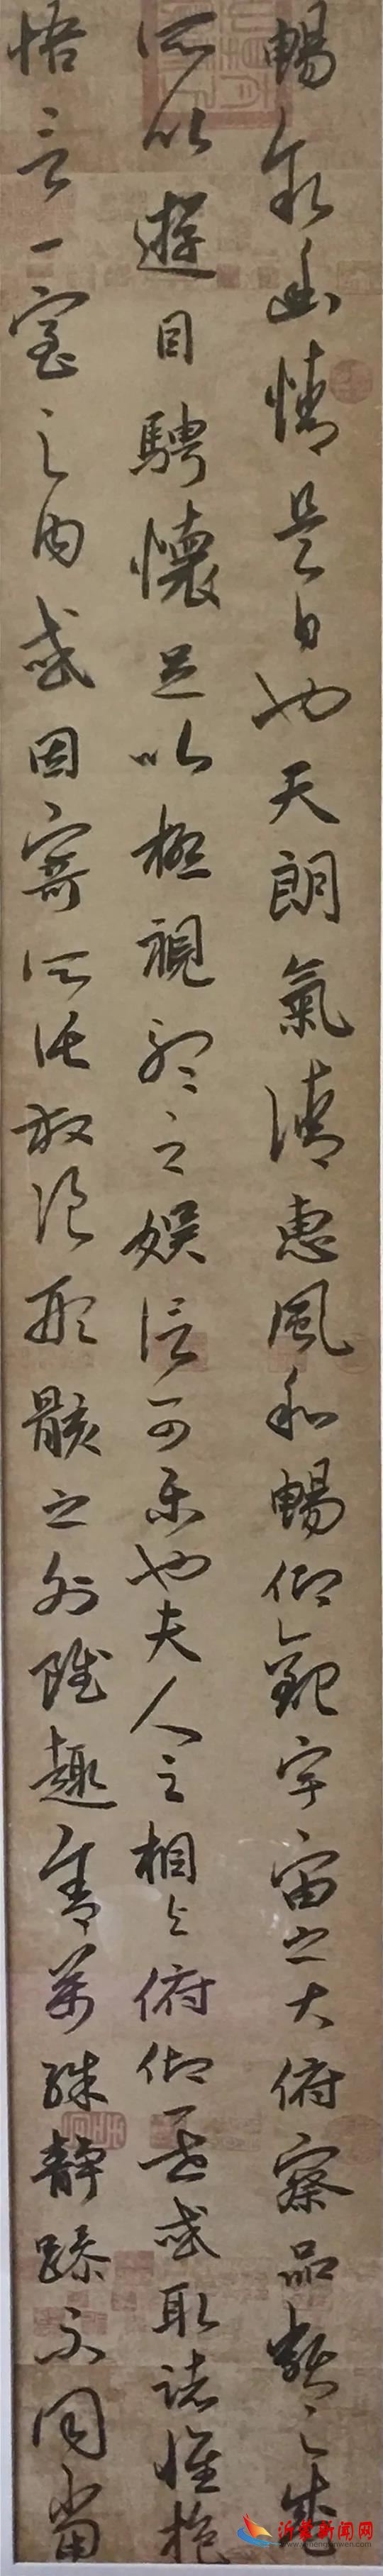 暢敘幽情是日也天朗氣清惠風和暢仰觀宇宙之大俯察品類之盛
所以遊目騁懷足以極視聽之娛信可樂也夫人之相與俯仰一世或取諸懷抱
悟言一室之內或因寄所託放浪形骸之外雖趣舍萬殊靜躁不同當
沂蒙新闻网